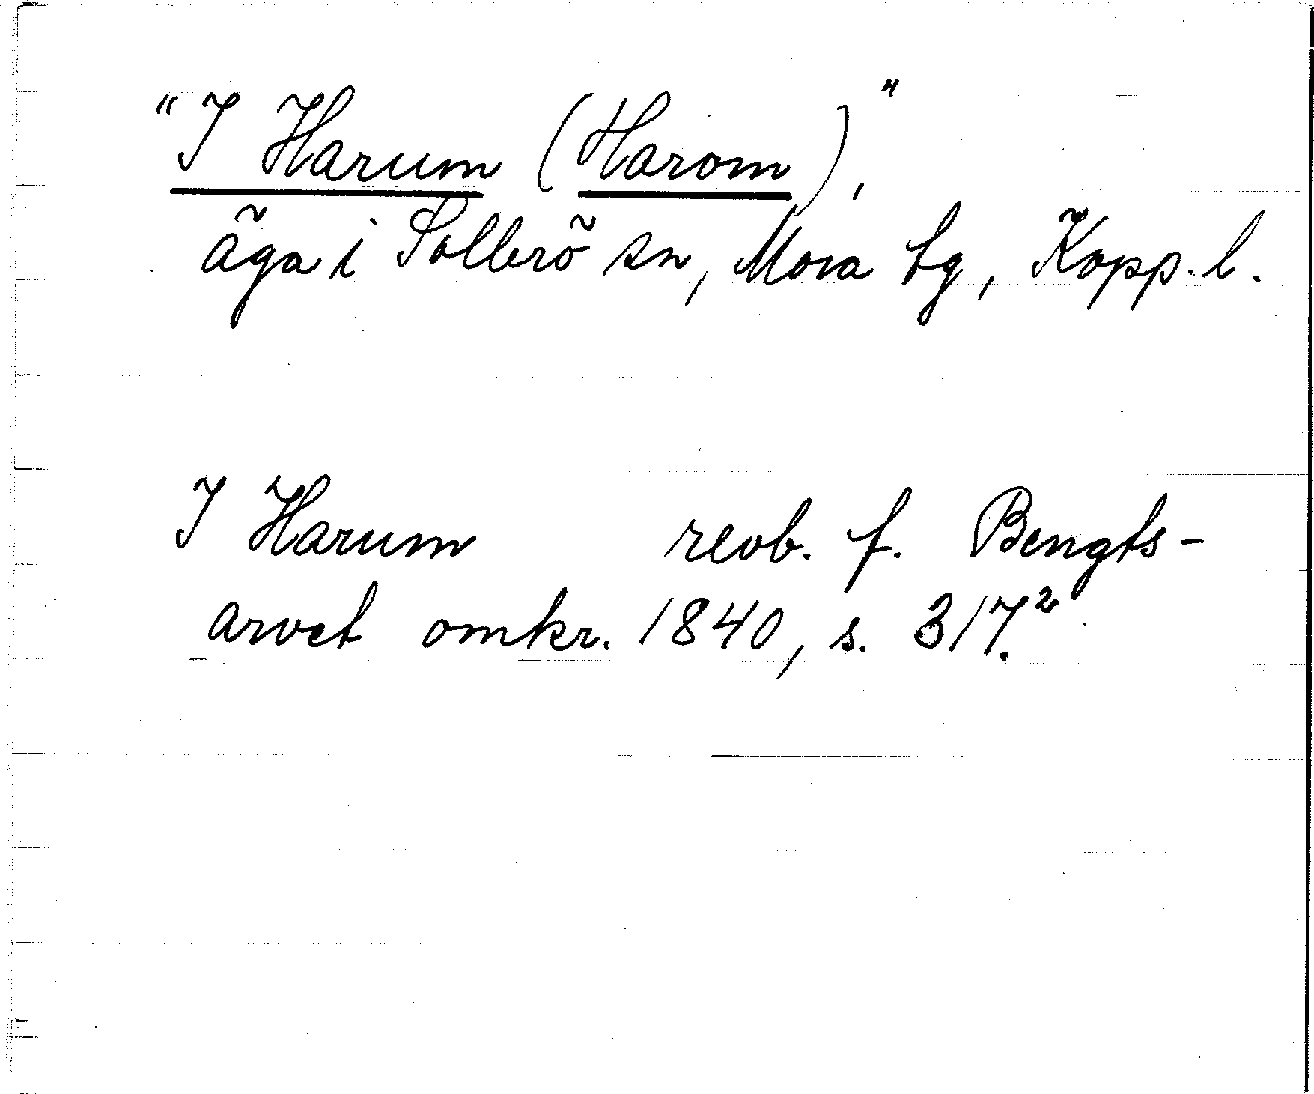 "I Harum (Harom),"
äga i Sollerö sn, Mora tg, Kopp. l.
I Harum revb. f. Bengts-
arvet omkr. 1840, s. 317.²